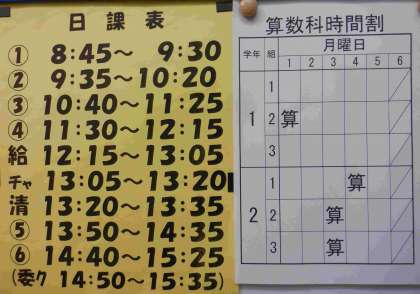 日課表
① 8:45～ 9:30
② 9:35～10:20
③ 10:40～11:25
④ 11:30～12:15
給 12:15～13:05
チャ 13:05～13:20
清 13:20～13:35
⑤ 13:50～14:35
⑥ 14:40～15:25
(委ク 14:50～15:35)
算数科時間割
学年 組 月曜日
1 2 3 4 5 6
1 1
2 算
3
2 1 算
2 算
3 算